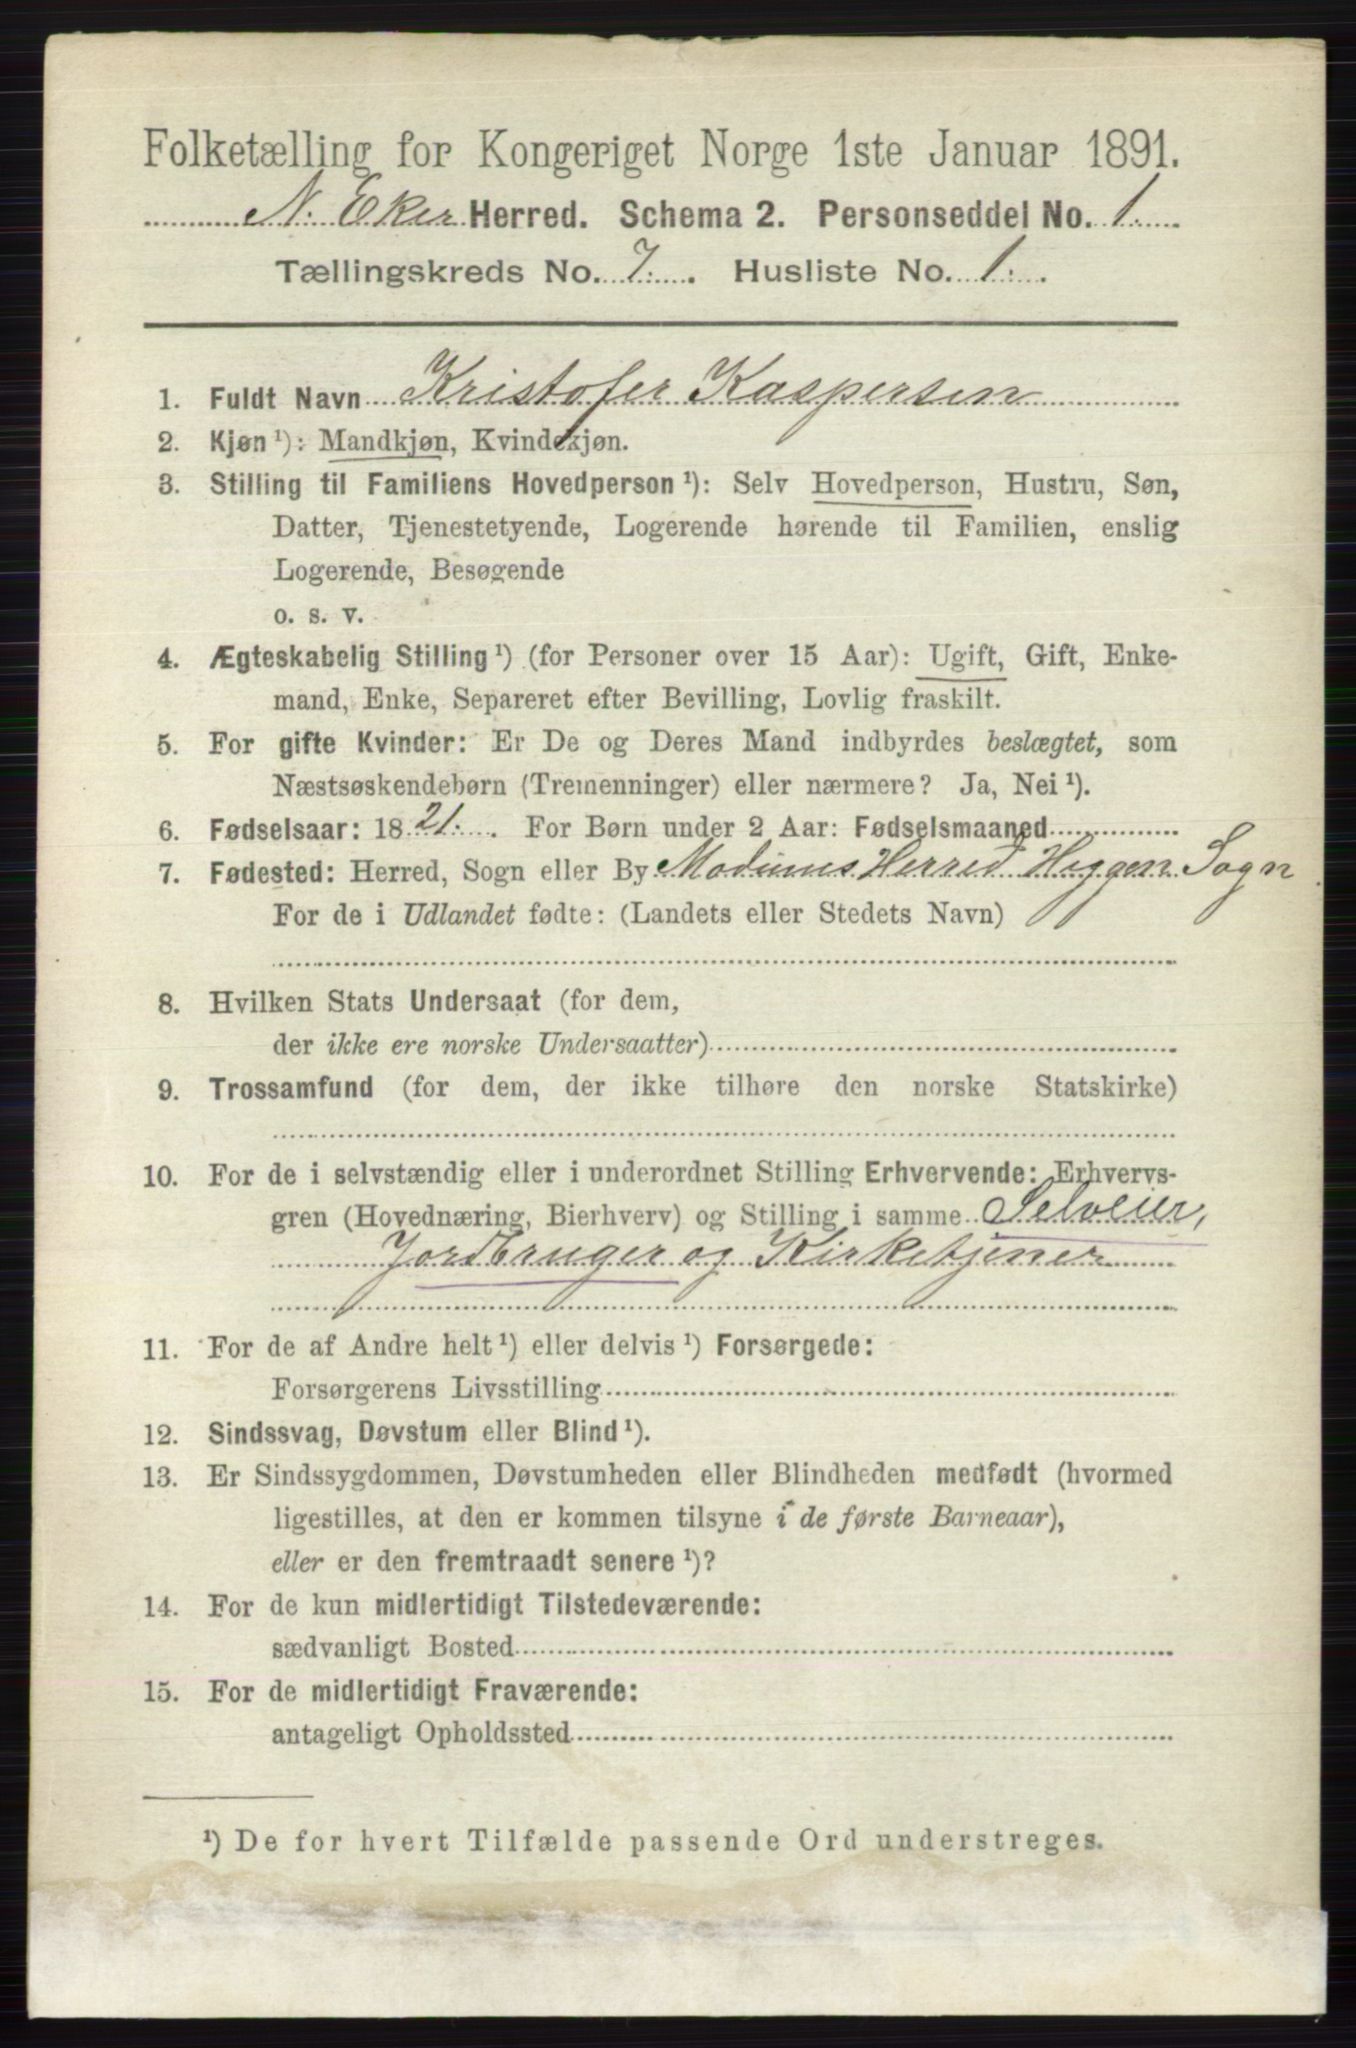 Folketælling for Kongeriget Norge 1ste Januar 1891.
N. Eker Herred. Schema 2. Personseddel No. 1.
Tællingskreds No. 7. Husliste No. 1.
1. Fuldt Navn Kristofer Kaspersen
2. Kjøn ¹): Mandkjøn, Kvindekjøn.
3. Stilling til Familiens Hovedperson ¹): Selv Hovedperson, Hustru, Søn,
Datter, Tjenestetyende, Logerende hørende til Familien, enslig
Logerende, Besøgende
o. s. v.
4. Ægteskabelig Stilling ¹) (for Personer over 15 Aar): Ugift, Gift, Enke-
mand, Enke, Separeret efter Bevilling, Lovlig fraskilt.
5. For gifte Kvinder: Er De og Deres Mand indbyrdes beslægtet, som
Næstsøskendebørn (Tremenninger) eller nærmere? Ja, Nei ¹).
6. Fødselsaar: 1821. For Børn under 2 Aar: Fødselsmaaned
7. Fødested: Herred, Sogn eller By Modums Herred Heggen Sogn
For de i Udlandet fødte: (Landets eller Stedets Navn)
8. Hvilken Stats Undersaat (for dem,
der ikke ere norske Undersaatter)
9. Trossamfund (for dem, der ikke tilhøre den norske Statskirke)
10. For de i selvstændig eller i underordnet Stilling Erhvervende: Erhvervs-
gren (Hovednæring, Bierhverv) og Stilling i samme Selveier,
Jordbruger og Kirketjener
11. For de af Andre helt ¹) eller delvis ¹) Forsørgede:
Forsørgerens Livsstilling
12. Sindssvag, Døvstum eller Blind ¹).
13. Er Sindssygdommen, Døvstumheden eller Blindheden medfødt (hvormed
ligestilles, at den er kommen tilsyne i de første Barneaar),
eller er den fremtraadt senere ¹)?
14. For de kun midlertidigt Tilstedeværende:
sædvanligt Bosted
15. For de midlertidigt Fraværende:
antageligt Opholdssted
¹) De for hvert Tilfælde passende Ord understreges.